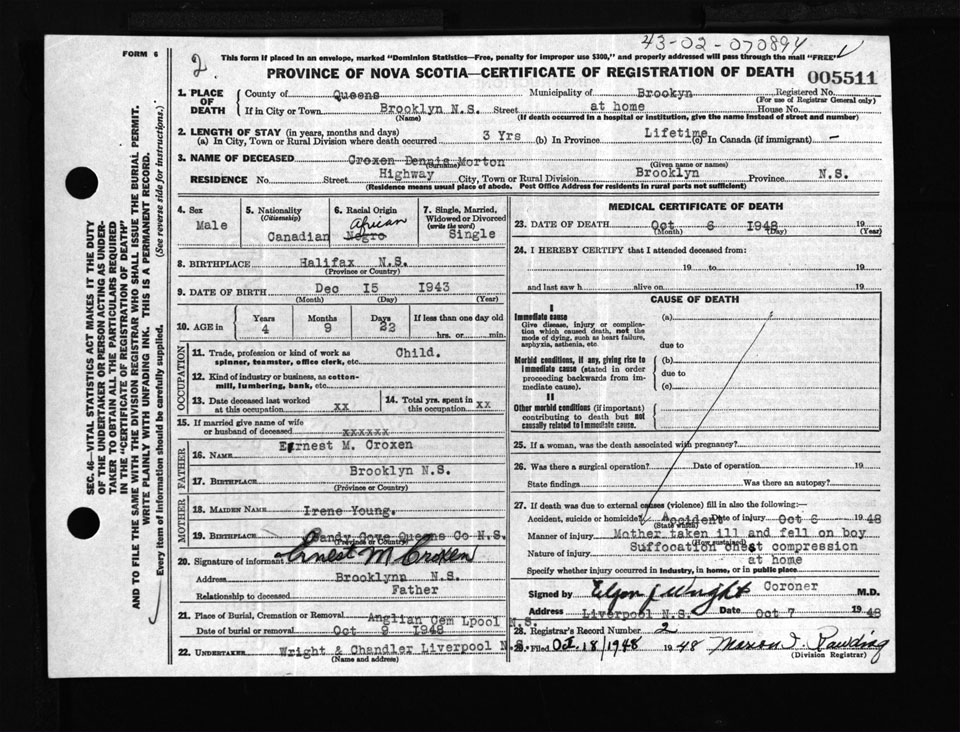 43-02-070894
FORM 6
2.
This form if placed in an envelope, marked "Dominion Statistics—Free, penalty for improper use $300," and properly addressed will pass through the mail "FREE"
PROVINCE OF NOVA SCOTIA—CERTIFICATE OF REGISTRATION OF DEATH
005511
1. PLACE OF DEATH
County of Queens Municipality of Brookyn Registered No.
(For use of Registrar General only)
If in City or Town Brooklyn N.S. Street at home House No.
(Name) (If death occurred in a hospital or institution, give the name instead of street and number)
2. LENGTH OF STAY (in years, months and days)
(a) In City, Town or Rural Division where death occurred 3 Yrs (b) In Province Lifetime (c) In Canada (if immigrant) —
3. NAME OF DECEASED Croxen Dennis Morton
(Surname) (Given name or names)
RESIDENCE No. Street Highway City, Town or Rural Division Brooklyn Province N.S.
(Residence means usual place of abode. Post Office Address for residents in rural parts not sufficient)
4. Sex Male
5. Nationality (Citizenship) Canadian
6. Racial Origin African Negro
7. Single, Married, Widowed or Divorced (write the word) Single
8. BIRTHPLACE Halifax N.S.
(Province or Country)
9. DATE OF BIRTH Dec 15 1943
(Month) (Day) (Year)
10. AGE in Years Months Days If less than one day old
4 9 22 hrs. or min.
OCCUPATION
11. Trade, profession or kind of work as spinner, teamster, office clerk, etc. Child.
12. Kind of industry or business, as cotton-mill, lumbering, bank, etc.
13. Date deceased last worked at this occupation xx
14. Total yrs. spent in this occupation xx
15. If married give name of wife or husband of deceased xxxxxx
FATHER
16. NAME Ernest M. Croxen
17. BIRTHPLACE Brooklyn N.S.
(Province or Country)
MOTHER
18. MAIDEN NAME Irene Young.
19. BIRTHPLACE Sandy Cove Queens Co N.S.
(Province or Country)
20. Signature of informant Ernest M Croxen
Address Brooklynn N.S.
Relationship to deceased Father
21. Place of Burial, Cremation or Removal Anglian Cem Lpool N.S.
Date of burial or removal Oct 9 1948
22. UNDERTAKER Wright & Chandler Liverpool N.S.
(Name and address)
MEDICAL CERTIFICATE OF DEATH
23. DATE OF DEATH Oct 6 1948 19
(Month) (Day) (Year)
24. I HEREBY CERTIFY that I attended deceased from:
19 to 19
and last saw h alive on 19
CAUSE OF DEATH
I
Immediate cause (a)
Give disease, injury or complication which caused death, not the mode of dying, such as heart failure, asphyxia, asthenia, etc.
due to
Morbid conditions, if any, giving rise to immediate cause (stated in order proceeding backwards from immediate cause).
(b)
due to
(c)
II
Other morbid conditions (if important) contributing to death but not causally related to immediate cause.
25. If a woman, was the death associated with pregnancy?
26. Was there a surgical operation? Date of operation 19
State findings Was there an autopsy?
27. If death was due to external causes (violence) fill in also the following:
Accident, suicide or homicide? Accident Date of injury Oct 6 1948
(State which)
Manner of injury Mother taken ill and fell on boy
(How sustained)
Nature of injury Suffocation chest compression
Specify whether injury occurred in industry, in home, or in public place at home
Signed by Coroner M.D.
Address Liverpool N.S. Date Oct 7 1948
28. Registrar's Record Number 2
29. Filed Oct. 18/1948 1948
(Division Registrar)
SEC. 46—VITAL STATISTICS ACT MAKES IT THE DUTY
OF THE UNDERTAKER OR PERSON ACTING AS UNDER-
TAKER TO OBTAIN ALL THE PARTICULARS REQUIRED
IN THE "CERTIFICATE OF REGISTRATION OF DEATH"
AND TO FILE THE SAME WITH THE DIVISION REGISTRAR WHO SHALL ISSUE THE BURIAL PERMIT.
WRITE PLAINLY WITH UNFADING INK. THIS IS A PERMANENT RECORD.
Every item of information should be carefully supplied. (See reverse side for instructions.)